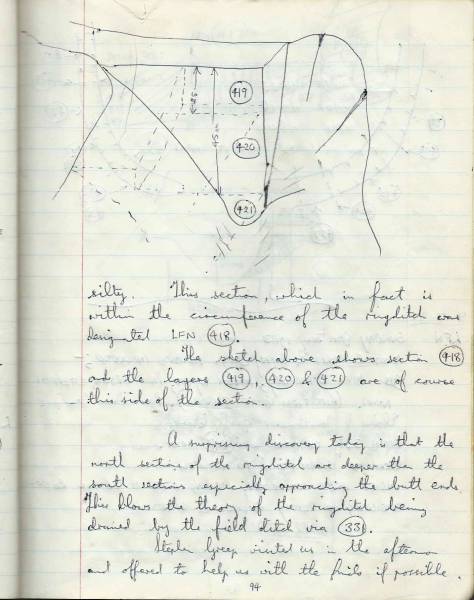 419
420
421
silty. This section, which in fact is
within the circumference of the ringditch was
designated LFN 418.
The sketch above shows section 418
and the layers 419, 420 & 421 are of course
this side of the section.
A surprising discovery today is that the
north sections of the ringditch are deeper than the
south sections especially approaching the butt ends.
This blows the theory of the ringditch being
drained by the field ditch via 331.
Stephen Greep visited us in the afternoon
and offered to help us with the finds if possible.
94